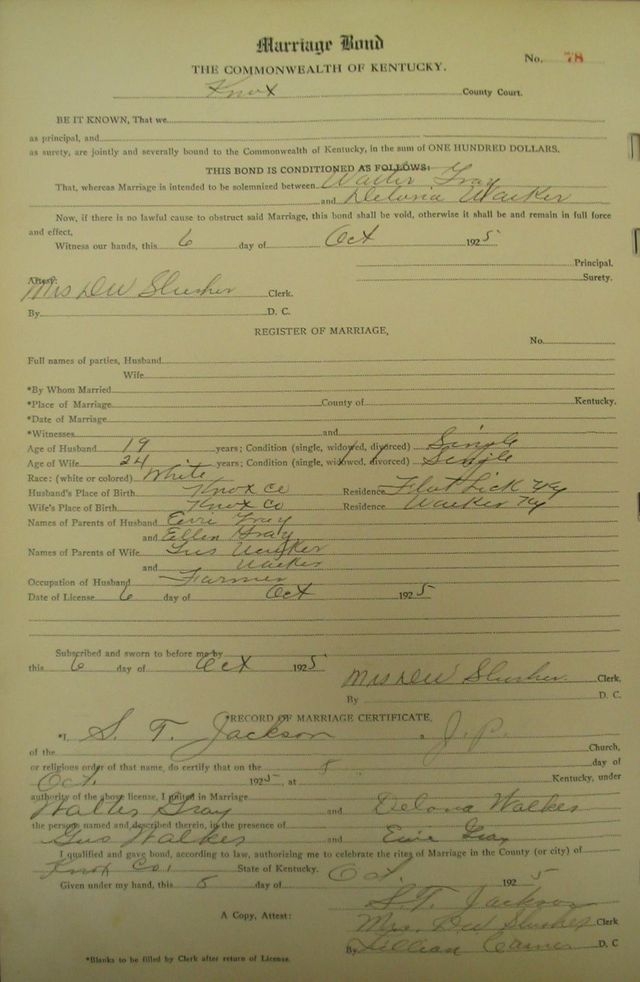 Marriage Bond
No. 78
THE COMMONWEALTH OF KENTUCKY.
Knox County Court.
BE IT KNOWN, That we
as principal, and
as surety, are jointly and severally bound to the Commonwealth of Kentucky, in the sum of ONE HUNDRED DOLLARS.
THIS BOND IS CONDITIONED AS FOLLOWS:
That, whereas Marriage is intended to be solemnized between Walter Gray
and Delona Walker
Now, if there is no lawful cause to obstruct said Marriage, this bond shall be void, otherwise it shall be and remain in full force
and effect,
Witness our hands, this 6 day of Oct 1925
Principal.
Surety.
Attest:
Mrs DW Slusher Clerk.
By D. C.
REGISTER OF MARRIAGE,
No.
Full names of parties, Husband
Wife
*By Whom Married
*Place of Marriage County of Kentucky.
*Date of Marriage
*Witnesses and
Age of Husband 19 years; Condition (single, widowed, divorced) Single
Age of Wife 24 years; Condition (single, widowed, divorced) Single
Race: (white or colored) White
Husband's Place of Birth Knox Co Residence Flat Lick Ky
Wife's Place of Birth Knox Co Residence Walker Ky
Names of Parents of Husband Gray
and Ellen Gray
Names of Parents of Wife Gus Walker
and Walker
Occupation of Husband Farmer
Date of License 6 day of Oct 1925
Subscribed and sworn to before me by
this 6 day of Oct 1925
Mrs DW Slusher Clerk,
By D. C.
RECORD OF MARRIAGE CERTIFICATE,
*I, S. T. Jackson a J. P.
of the Church,
or religious order of that name, do certify that on the 8 day of
Oct. 1925, at Kentucky, under
authority of the above license, I united in Marriage
Walter Gray and Delona Walker
the person named and described therein, in the presence of
Gus Walker and Gray
I qualified and gave bond, according to law, authorizing me to celebrate the rites of Marriage in the County (or city) of
Knox Co, State of Kentucky.
Given under my hand, this 8 day of Oct. 1925
S. T. Jackson
A Copy, Attest: Mrs. DW Slusher Clerk
By Lillian D. C
*Blanks to be filled by Clerk after return of License.